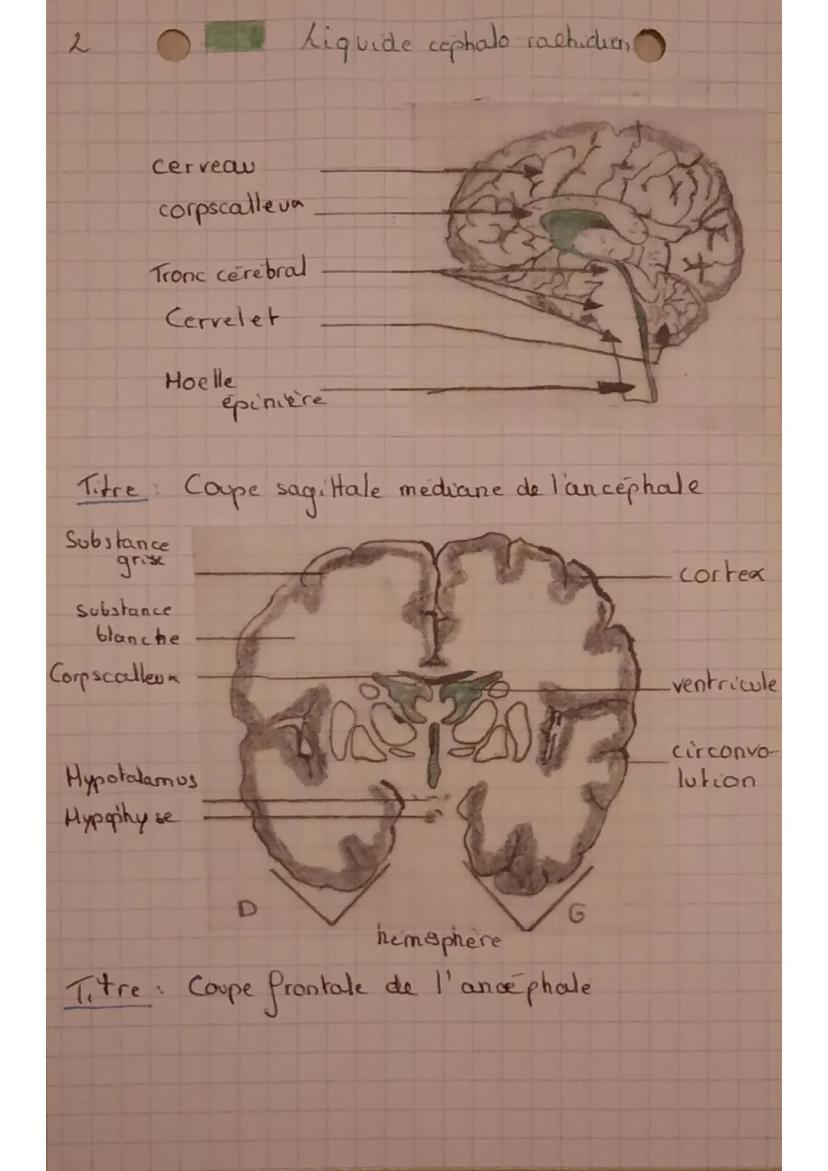 2
Liquide cephalo rachidien
cerveau
corpscalleux
Tronc cérébral
Cervelet
Moelle
épinière
Titre : Coupe sagittale mediane de l'ancéphale
Substance
grise
cortex
substance
blanche
Corpscalleux
ventricule
circonvo-
lution
Hypotalamus
Hypophyse
D
G
hemisphère
Titre : Coupe frontale de l'ancéphale